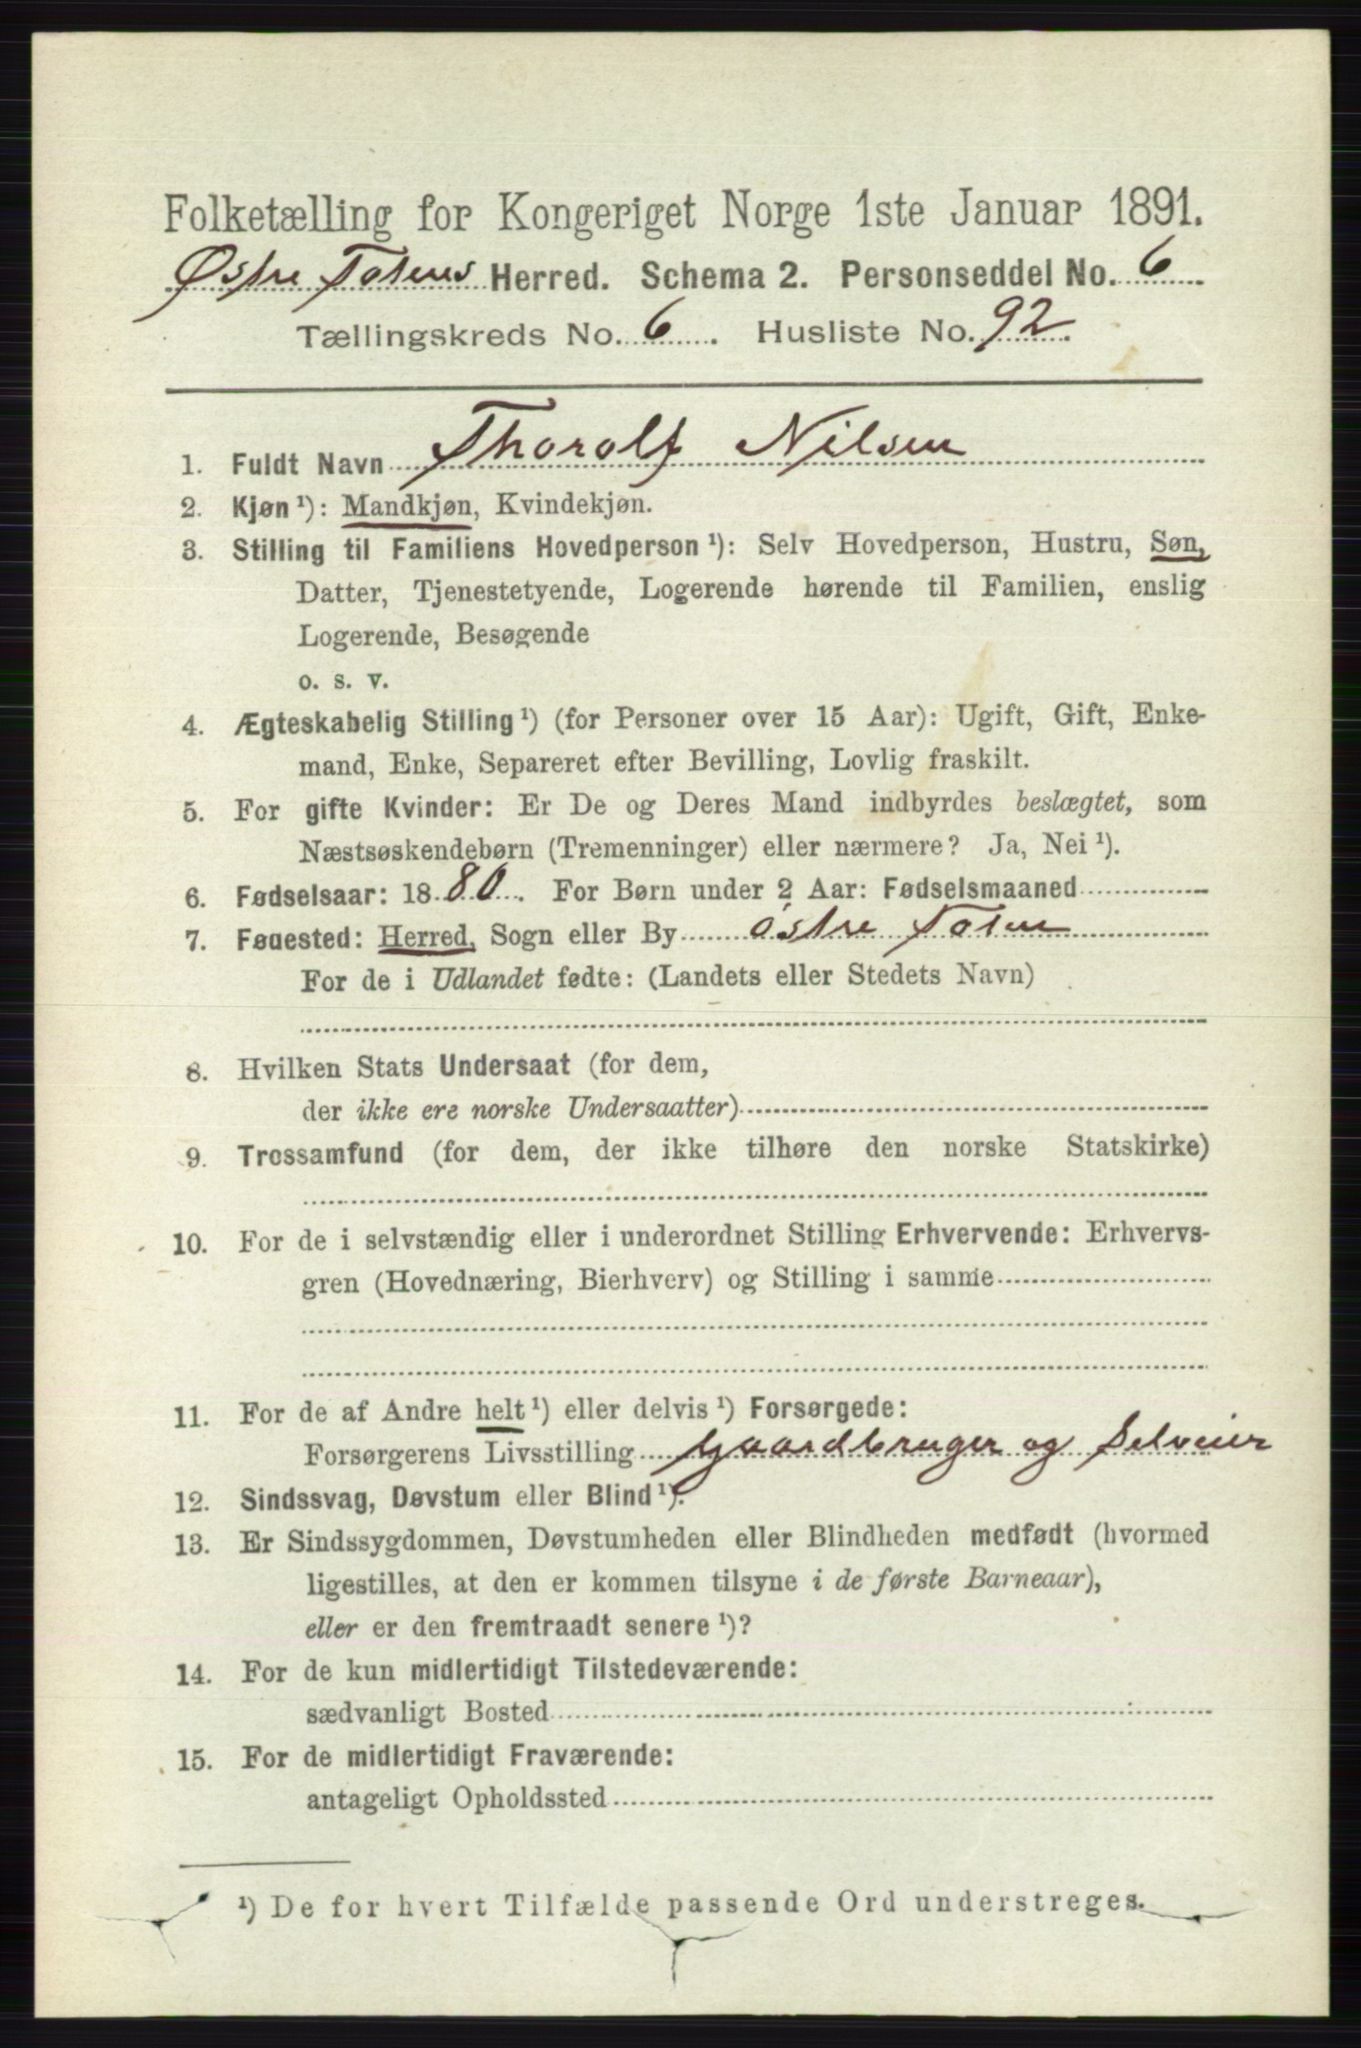 Folketælling for Kongeriget Norge 1ste Januar 1891.
Østre Totens Herred. Schema 2. Personseddel No. 6
Tællingskreds No. 6. Husliste No. 92.
1. Fuldt Navn Thorolf Nilsen
2. Kjøn ¹): Mandkjøn, Kvindekjøn.
3. Stilling til Familiens Hovedperson ¹): Selv Hovedperson, Hustru, Søn,
Datter, Tjenestetyende, Logerende hørende til Familien, enslig
Logerende, Besøgende
o. s. v.
4. Ægteskabelig Stilling ¹) (for Personer over 15 Aar): Ugift, Gift, Enke-
mand, Enke, Separeret efter Bevilling, Lovlig fraskilt.
5. For gifte Kvinder: Er De og Deres Mand indbyrdes beslægtet, som
Næstsøskendebørn (Tremenninger) eller nærmere? Ja, Nei ¹).
6. Fødselsaar: 1880. For Børn under 2 Aar: Fødselsmaaned
7. Fødested: Herred, Sogn eller By østre Toten
For de i Udlandet fødte: (Landets eller Stedets Navn)
8. Hvilken Stats Undersaat (for dem,
der ikke ere norske Undersaatter)
9. Trossamfund (for dem, der ikke tilhøre den norske Statskirke)
10. For de i selvstændig eller i underordnet Stilling Erhvervende: Erhvervs-
gren (Hovednæring, Bierhverv) og Stilling i samme
11. For de af Andre helt ¹) eller delvis ¹) Forsørgede:
Forsørgerens Livsstilling Gaardbruger og Selveier
12. Sindssvag, Døvstum eller Blind ¹).
13. Er Sindssygdommen, Døvstumheden eller Blindheden medfødt (hvormed
ligestilles, at den er kommen tilsyne i de første Barneaar),
eller er den fremtraadt senere ¹)?
14. For de kun midlertidigt Tilstedeværende:
sædvanligt Bosted
15. For de midlertidigt Fraværende:
antageligt Opholdssted
¹) De for hvert Tilfælde passende Ord understreges.